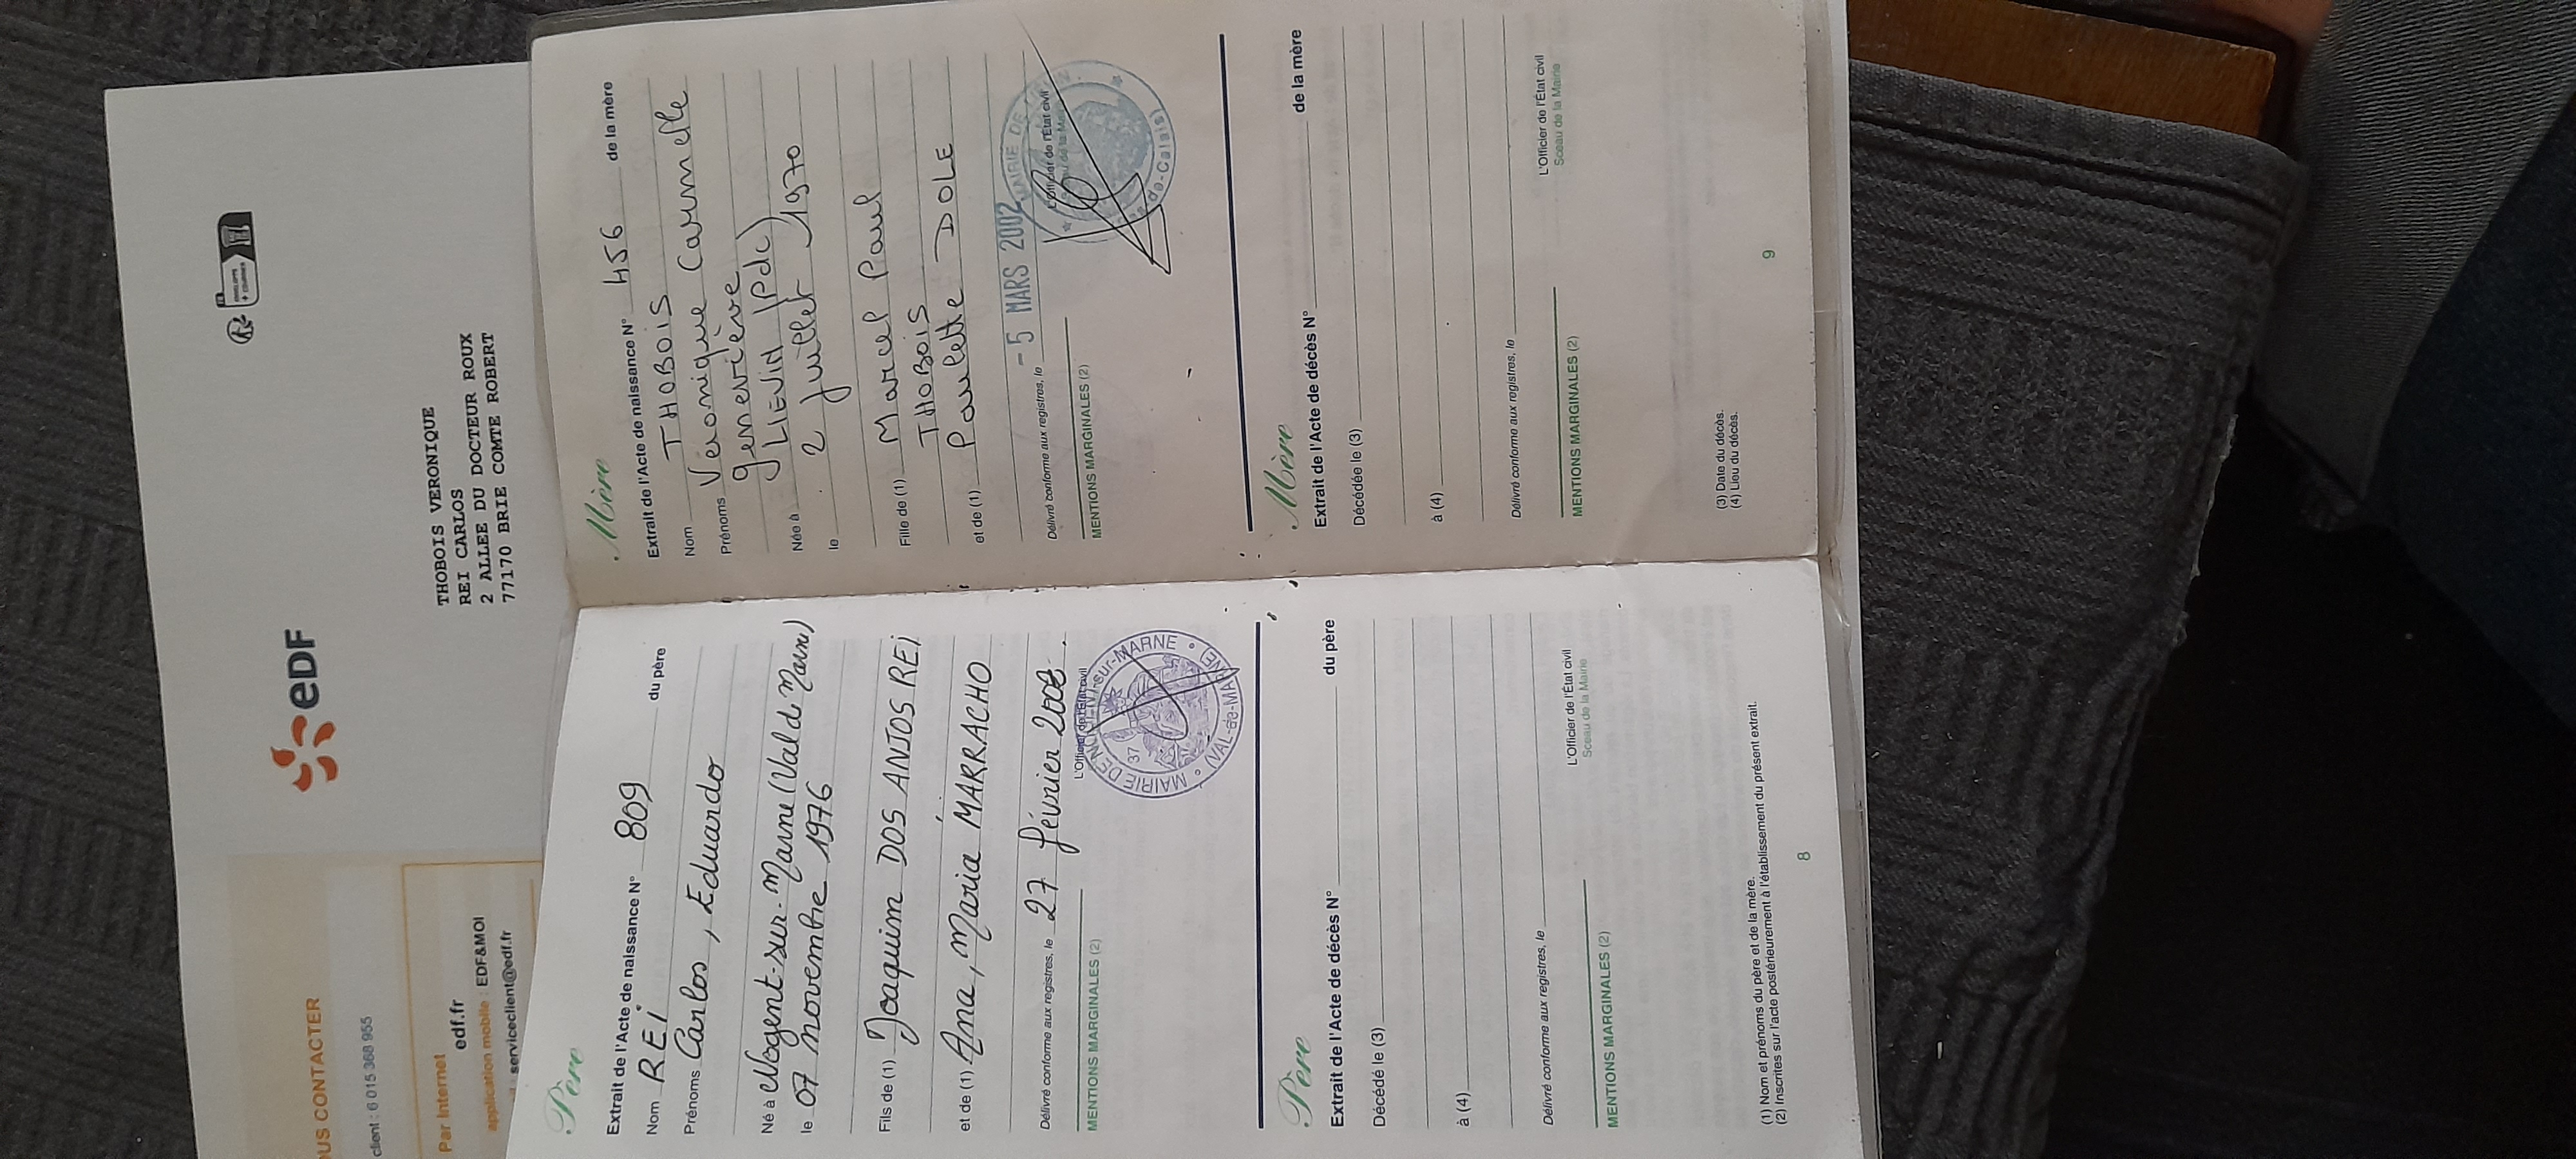 eDF
THOBOIS VERONIQUE
REI CARLOS
2 ALLEE DU DOCTEUR ROUX
77170 BRIE COMTE ROBERT
OUS CONTACTER
client : 6 015 368 955
Par Internet
edf.fr
application mobile : EDF&MOI
serviceclient@edf.fr
Père
Extrait de l'Acte de naissance N° 809 du père
Nom REI
Prénoms Carlos, Eduardo
Né à Nogent-sur-Marne (Val de Marne)
le 07 novembre 1976
Fils de (1) Joaquim DOS ANJOS REI
et de (1) Ana, Maria MARRACHO
Délivré conforme aux registres, le 27 février 2002
L'Officier de l'État civil
MAIRIE DE NOGENT-sur-MARNE
(VAL-de-MARNE)
37
MENTIONS MARGINALES (2)
Père
Extrait de l'Acte de décès N° du père
Décédé le (3)
à (4)
Délivré conforme aux registres, le
L'Officier de l'État civil
Sceau de la Mairie
MENTIONS MARGINALES (2)
(1) Nom et prénoms du père et de la mère.
(2) Inscrites sur l'acte postérieurement à l'établissement du présent extrait.
8
Mère
Extrait de l'Acte de naissance N° 456 de la mère
Nom THOBOIS
Prénoms Véronique Carmelle
Geneviève
Née à LIEVIN (Pdc)
le 2 Juillet 1970
Fille de (1) Marcel Paul
THOBOIS
et de (1) Paulette DOLE
Délivré conforme aux registres, le - 5 MARS 2002
L'Officier de l'État civil
Sceau de la Mairie
MAIRIE DE
de-Calais)
MENTIONS MARGINALES (2)
Mère
Extrait de l'Acte de décès N° de la mère
Décédée le (3)
à (4)
Délivré conforme aux registres, le
L'Officier de l'État civil
Sceau de la Mairie
MENTIONS MARGINALES (2)
(3) Date du décès.
(4) Lieu du décès.
9